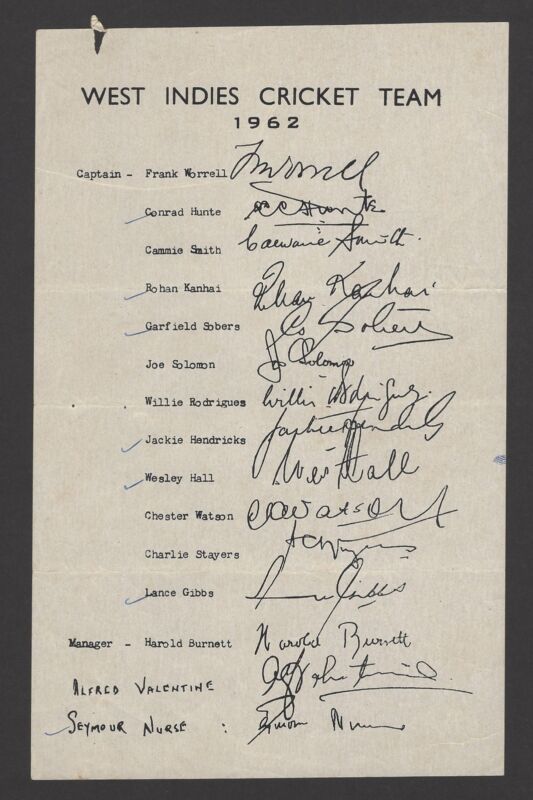 WEST INDIES CRICKET TEAM
1962
Captain - Frank Worrell
Conrad Hunte CCHunte
Cammie Smith Cammie Smith.
Rohan Kanhai Rohan Kanhai
Garfield Sobers G Sobers
Joe Solomon Jos Solomon
Willie Rodrigues Willie Rodriguez.
Jackie Hendricks Jackie Hendricks
Wesley Hall Wes Hall
Chester Watson CWatson
Charlie Stayers
Lance Gibbs Lance Gibbs
Manager - Harold Burnett Harold Burnett
ALFRED VALENTINE
SEYMOUR NURSE :